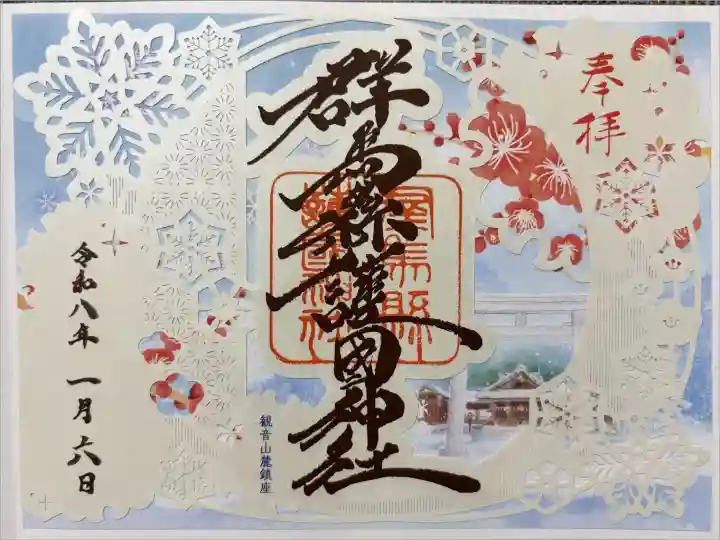 奉拝
群馬縣護國神社
群馬縣
護國神社
観音山麓鎮座
令和八年 一月六日